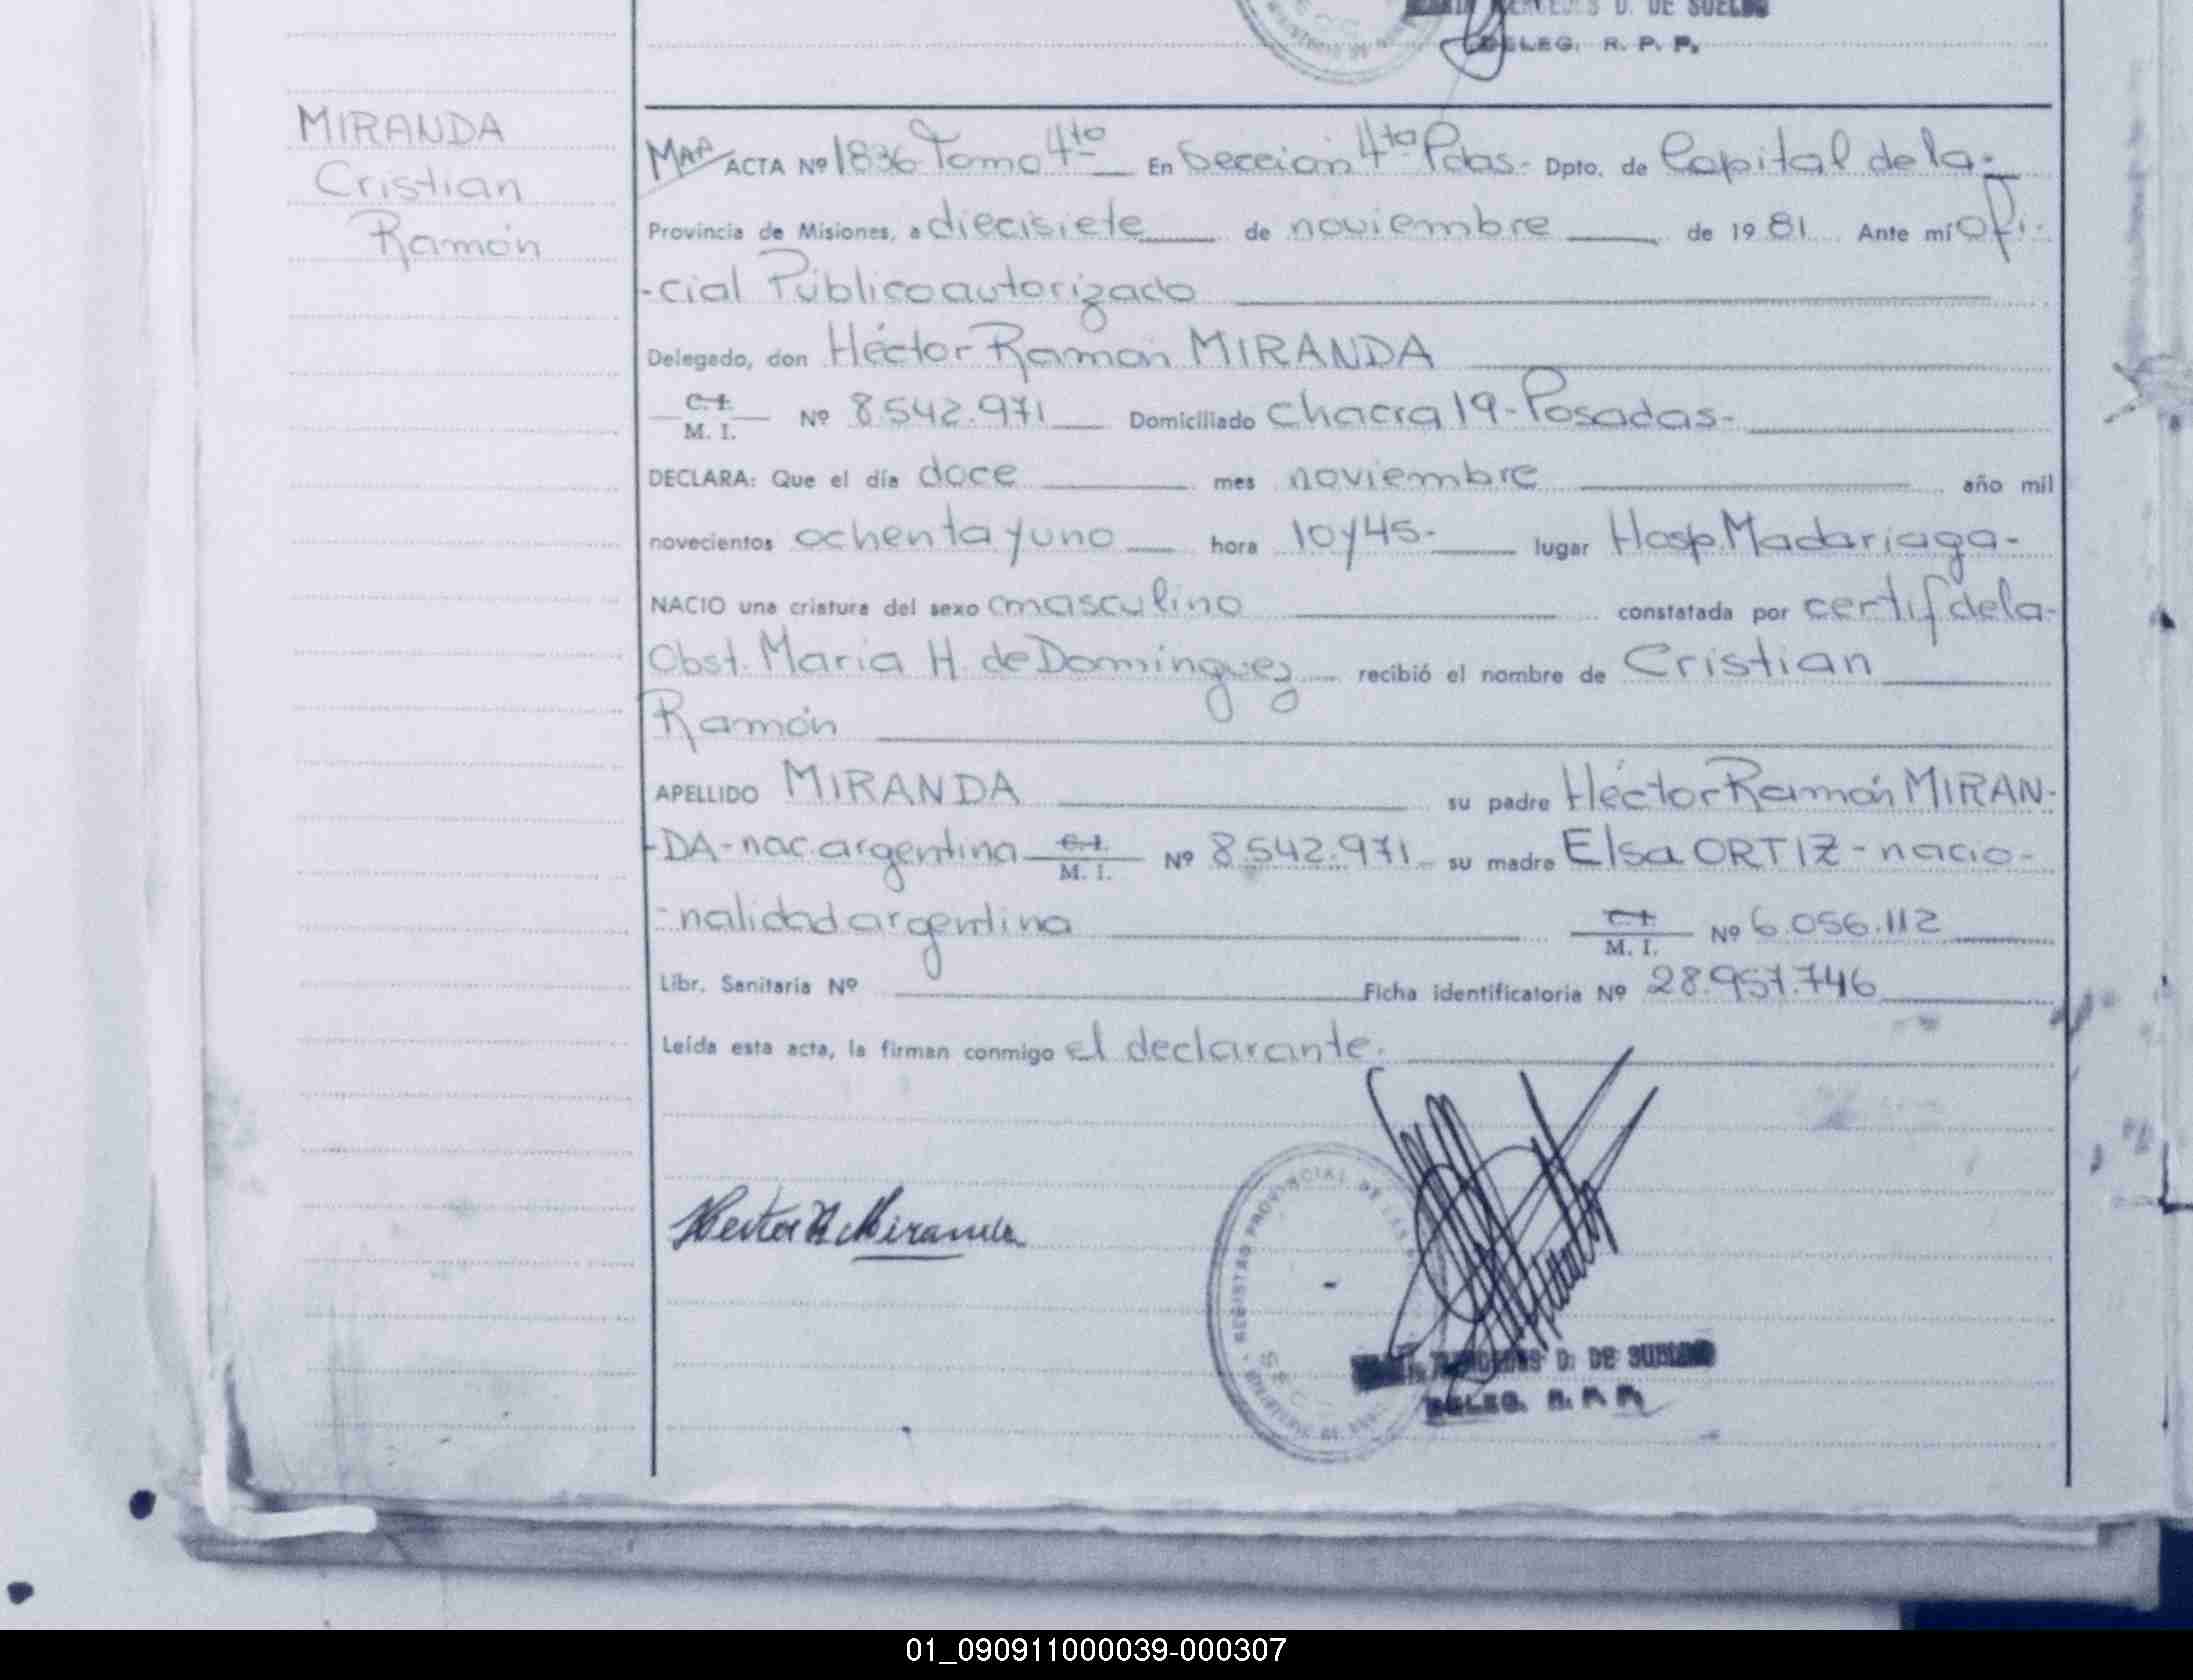 MERCEDES D. DE SUELDO
DELEG. R. P. P.
MIRANDA
Cristian
Ramón
ACTA Nº 1836 Tomo 4to En Sección 4ta Pdas- Dpto. de Capital de la-
Provincia de Misiones, a diecisiete de noviembre de 1981 Ante mí Ofi-
-cial Público autorizado
Delegado, don Héctor Ramón MIRANDA
C. I.
M. I. Nº 8.542.971 Domiciliado Chacra 19-Posadas-
DECLARA: Que el día doce mes noviembre año mil
novecientos ochenta y uno hora 10 y 45- lugar Hosp. Madariaga-
NACIO una criatura del sexo masculino constatada por certif de la-
Obst. María H. de Domínguez recibió el nombre de Cristian
Ramón
APELLIDO MIRANDA su padre Héctor Ramón MIRAN-
-DA-nac argentina C. I. M. I. Nº 8.542.971 su madre Elsa ORTIZ-nacio-
-nalidad argentina C. I. M. I. Nº 6.056.112
Libr. Sanitaria Nº Ficha identificatoria Nº 28.957.746
Leída esta acta, la firman conmigo el declarante.
Hector R Miranda
REGISTRO PROVINCIAL DE LAS
D. DE SUELDO
DELEG. R. P. P.
01_090911000039-000307